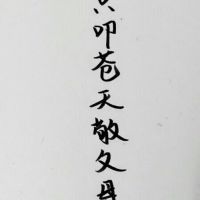 叩苍天敬父母